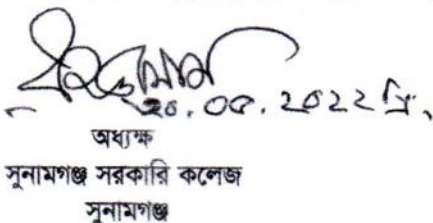 ২০.০৫.২০২২ খ্রি.
অধ্যক্ষ
সুনামগঞ্জ সরকারি কলেজ
সুনামগঞ্জ